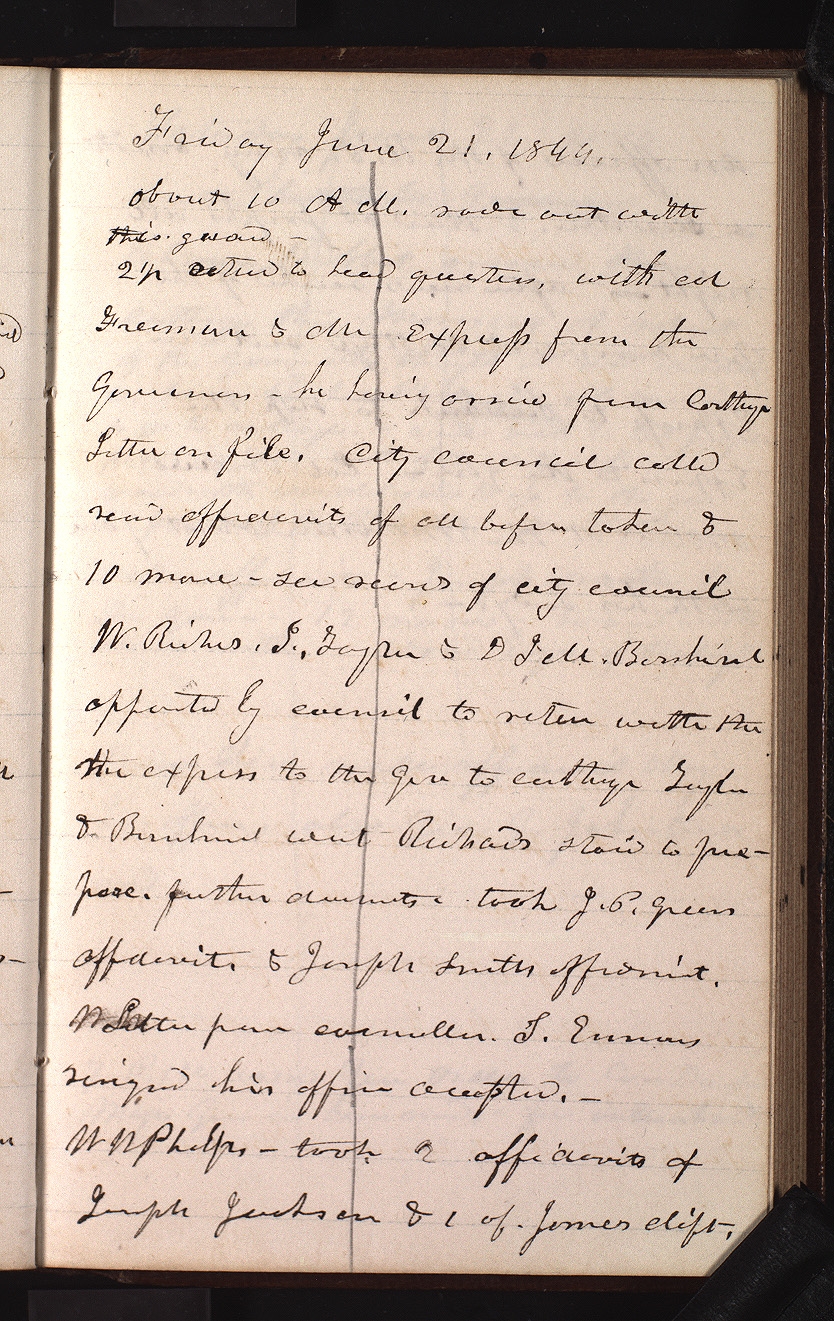 Friday June 21. 1844.
about 10 A M. rode out with
this guard –
2½ retud to head quarters, with col
Freeman & Mr Express from the
Governor – he having arrivd from Carthge
Letter on file. City council calld
read affidavits of all before taken &
10 more – see records of city council
W. Richds. J. Taylor & D J M. Bernhisel
appointd by council to return with the
the express to the Gov to carthage Taylor
& Bernhisel went Richards staid to pre-
pare. further documts. took J. P. Greens
affidavit. & Joseph Smiths affidavit.
Letter from councillor. J. Emmons
resigned his office accepted. –
W W Phelps – took 2 affidavits of
Joseph Jackson & 1 of James clift.